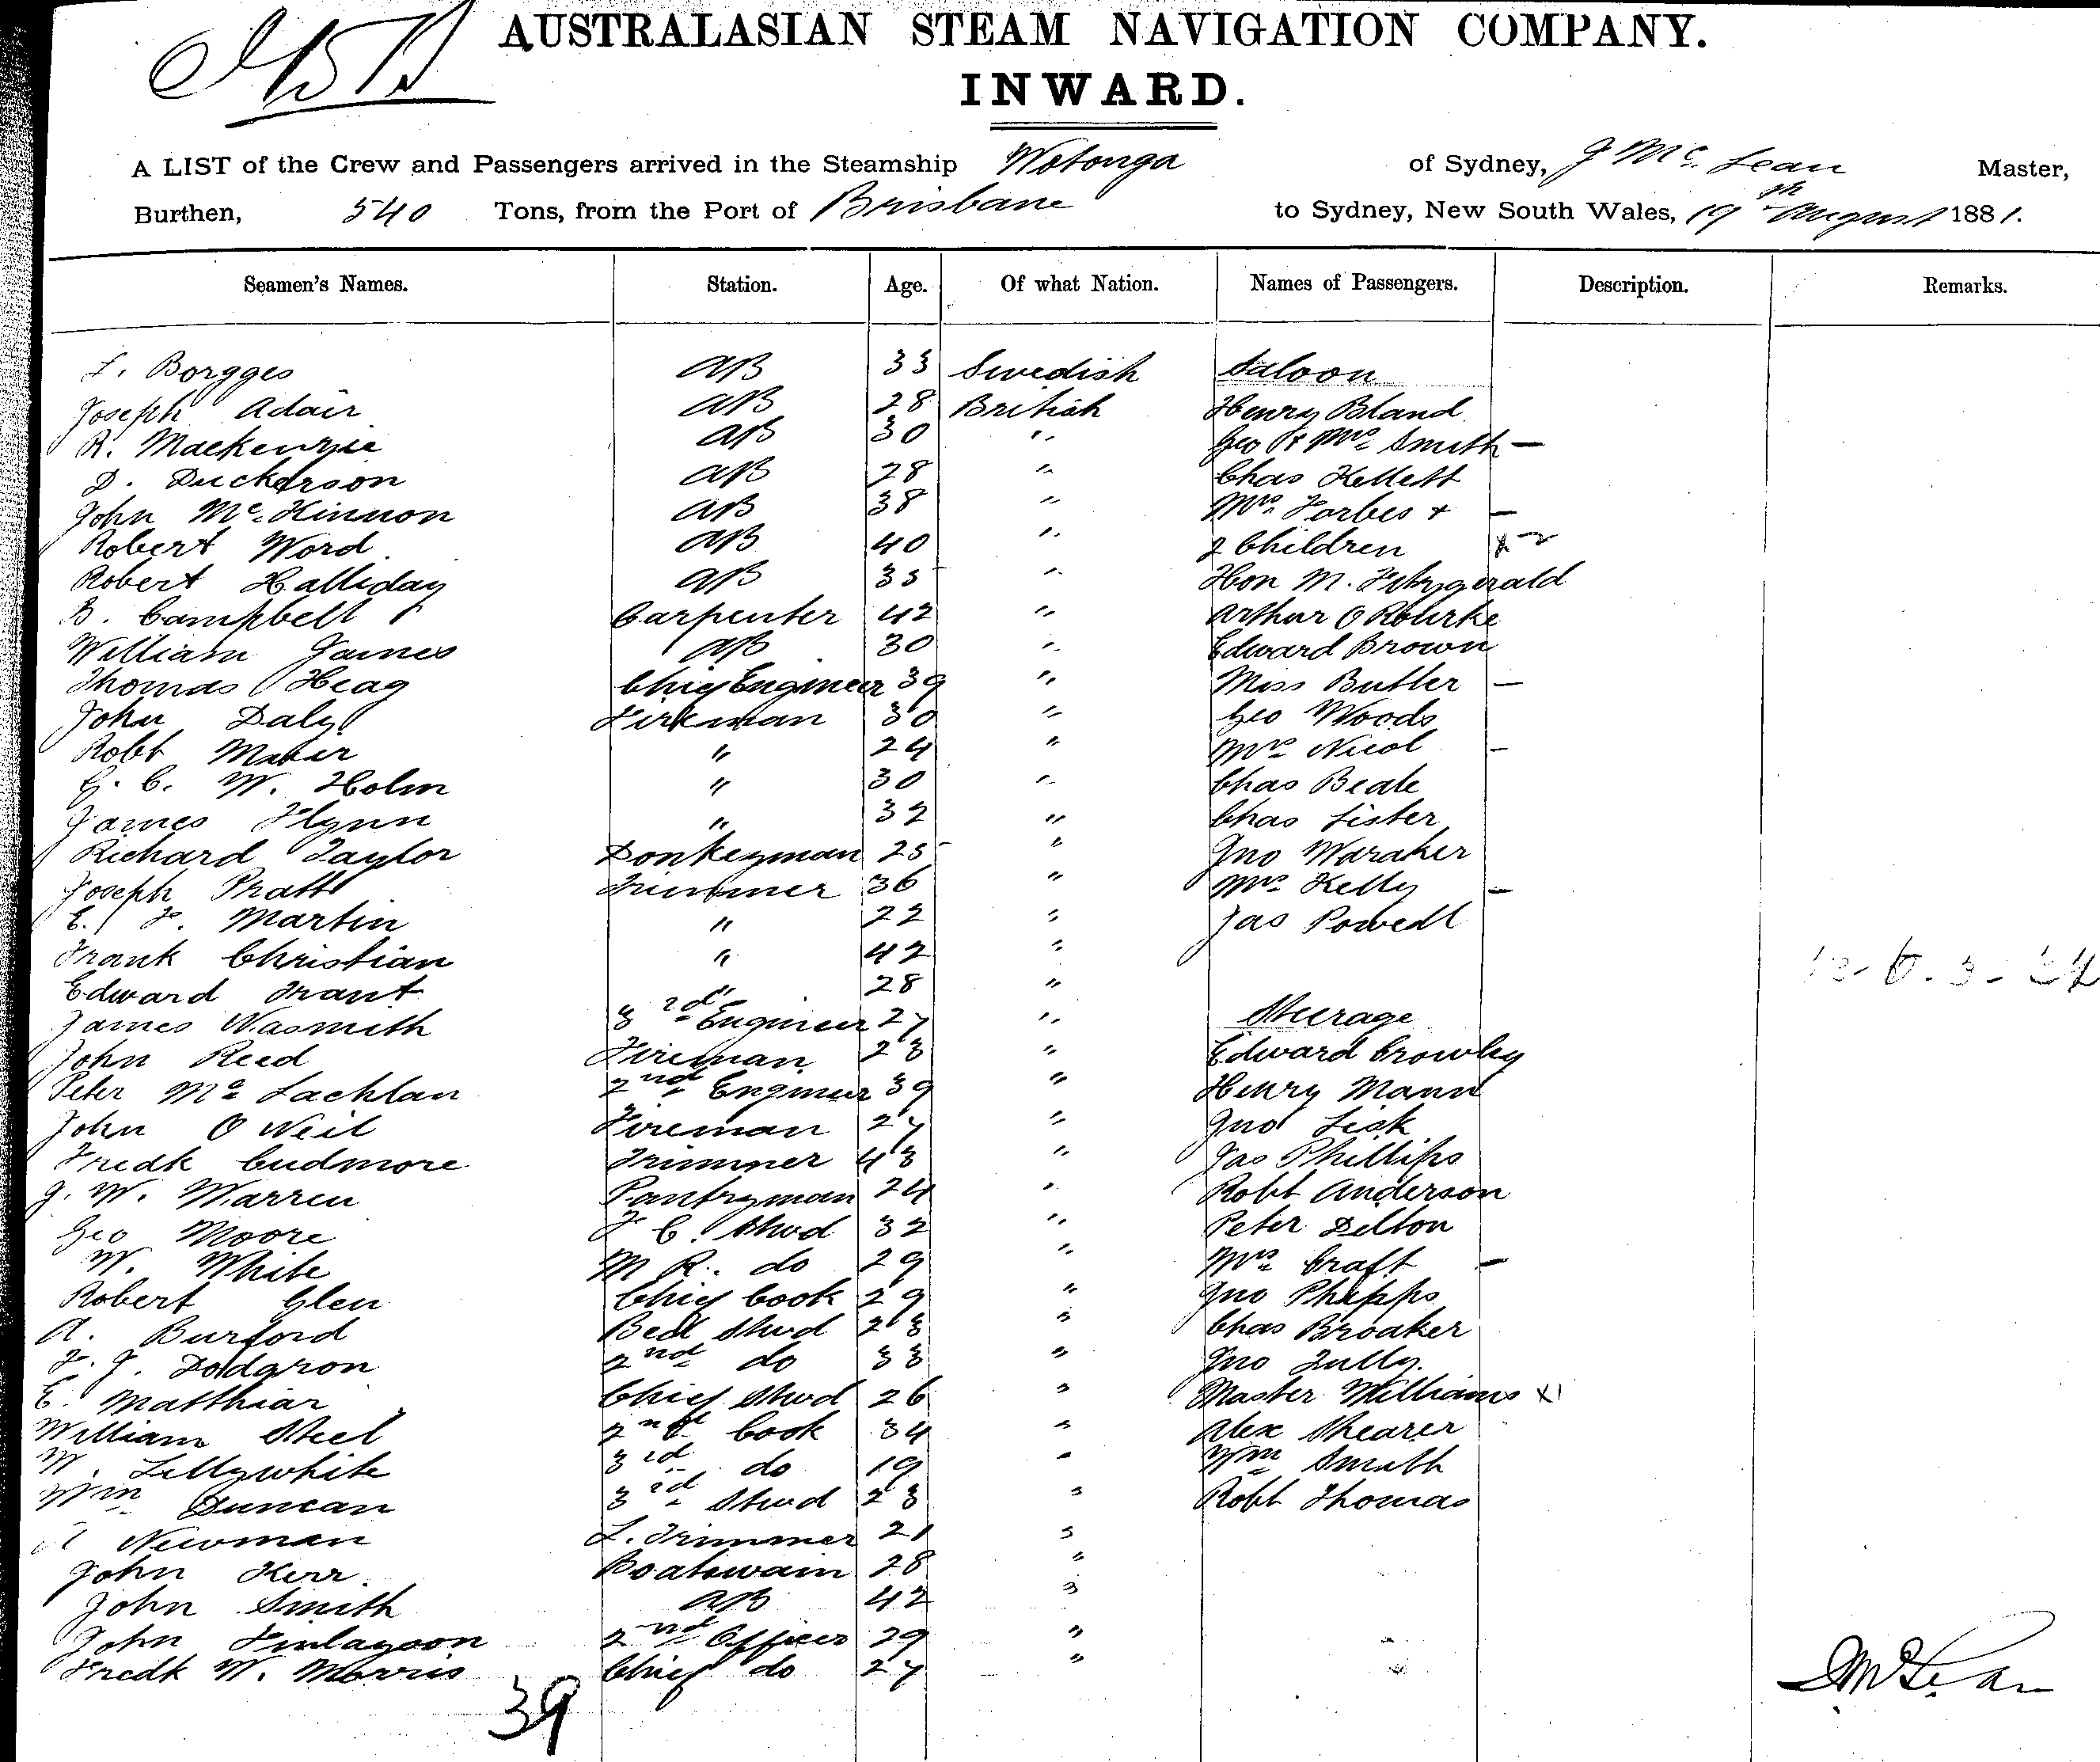 AUSTRALASIAN STEAM NAVIGATION COMPANY.
INWARD.
A LIST of the Crew and Passengers arrived in the Steamship Wotonga of Sydney, J McLean Master,
Burthen, 540 Tons, from the Port of Brisbane to Sydney, New South Wales, 19th August 1881.
Seamen's Names. Station. Age. Of what Nation. Names of Passengers. Description. Remarks.
L. Borgges AB 33 Swedish Saloon
Joseph Adair AB 28 British Henry Bland
R. Mackenzie AB 30 " Geo & Mrs Smith —
D. Duckerson AB 28 " Chas Kellett
John McKinnon AB 38 " Mrs Forbes + —
Robert Word AB 40 " 2 Children x 2
Robert Halliday AB 35 " Hon M. Fitzgerald
B. Campbell Carpenter 42 " Arthur O Rourke
William James AB 30 " Edward Brown
Thomas Heag Chief Engineer 39 " Miss Butler —
John Daly Fireman 30 " Geo Woods
Robt " 24 " Mrs Nicol —
G. C. W. Holm " 30 " Chas Beale
James Flynn " 32 " Chas Lister
Richard Taylor Donkeyman 25 " Jno Waraker
Joseph Pratt Trimmer 36 " Mrs Kelly —
E. F. Martin " 22 " Jas Powell
Frank Christian " 42 "
Edward Grant " 28 "
James Wasmith 3rd Engineer 27 " Steerage
John Reed Fireman 23 " Edward Crowley
Peter McLachlan 2nd Engineer 39 " Henry Mann
John O Neil Fireman 27 " Jno Lisk
Fredk Cudmore Trimmer 43 " Jas Phillips
J. W. Warren Pantryman 24 " Robt Anderson
Geo Moore F C. Stwd 32 " Peter Dillon
W. White M R. do 29 " Mrs Craft —
Robert Glen Chief Cook 29 " Jno Phipps
A. Burford Bed Stwd 23 " Chas Broaker
F. J. Dodgson 2nd do 33 " Jno Tully.
E. Matthias Chief Stwd 26 " Master Williams x1
William Steel 2nd Cook 34 " Alex Shearer
W. Lillywhite 3rd do 19 " Wm Smith
Wm Duncan 3rd Stwd 23 " Robt Thomas
Newman L. Trimmer 21 "
John Kerr Boatswain 28 "
John Smith AB 42 "
John Finlayson 2nd Officer 29 "
Fredk W. Morris Chief do 27 "
39
J McLean